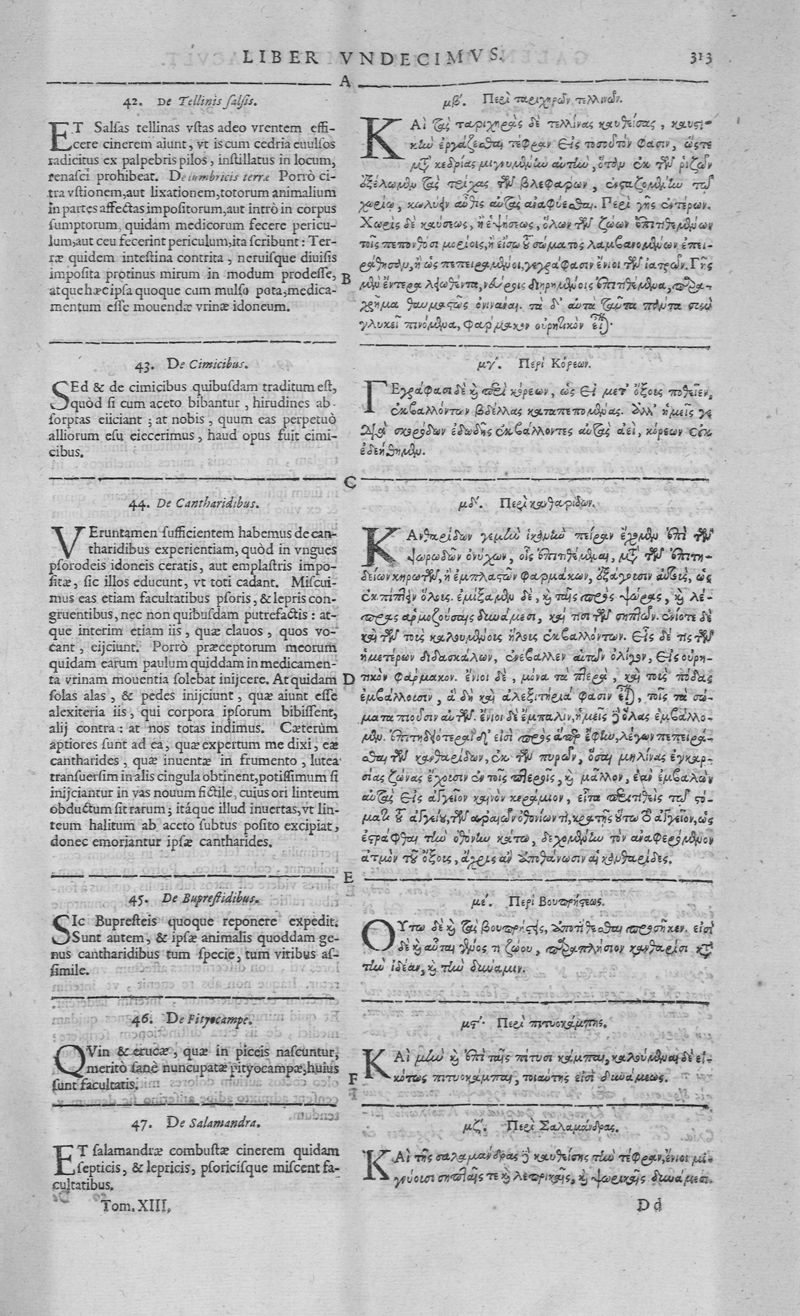 LIBER VNDECIMVS. 313
A
42. De Tellinis salsis.
ET Salsas tellinas vstas adeo vrentem effi-
cere cinerem aiunt, vt is cum cedria euulsos
radicitus ex palpebris pilos, instillatus in locum,
renasci prohibeat. De lumbricis terræ Porrò ci-
tra vstionem, aut lixationem, totorum animalium
in partes affectas impositorum, aut intrò in corpus
sumptorum, quidam medicorum fecere pericu-
lum, aut ceu fecerint periculum, ita scribunt: Ter-
ræ quidem intestina contrita, neruisque diuisis
imposita protinus mirum in modum prodesse, B
atque hæc ipsa quoque cum mulso pota, medica-
mentum esse mouendæ vrinæ idoneum.
43. De Cimicibus.
SEd & de cimicibus quibusdam traditum est,
quòd si cum aceto bibantur, hirudines ab-
sorptas eiiciant; at nobis, quum eas perpetuò
alliorum esu eiecerimus, haud opus fuit cimi-
cibus.
C
44. De Cantharidibus.
VEruntamen sufficientem habemus de can-
tharidibus experientiam, quòd in vngues
psorodeis idoneis ceratis, aut emplastris impo-
sitæ, sic illos educunt, vt toti cadant. Miscui-
mus eas etiam facultatibus psoris, & lepris con-
gruentibus, nec non quibusdam putrefactis: at-
que interim etiam iis, quæ clauos, quos vo-
cant, eijciunt. Porrò præceptorum meorum
quidam earum paulum quiddam in medicamen-
ta vrinam mouentia solebat inijcere. At quidam D
solas alas, & pedes inijciunt, quæ aiunt esse
alexiteria iis, qui corpora ipsorum bibissent,
alij contra: at nos totas indimus. Cæterùm
aptiores sunt ad ea, quæ expertum me dixi, eæ
cantharides, quæ inuentæ in frumento, lutea
transuersim in alis cingula obtinent, potissimum si
inijciantur in vas nouum fictile, cuius ori linteum
obductum sit rarum; itáque illud inuertas, vt lin-
teum halitum ab aceto subtus posito excipiat,
donec emoriantur ipsæ cantharides.
E
45. De Buprestidibus.
SIc Bupresteis quoque reponere expedit.
Sunt autem, & ipsæ animalis quoddam ge-
nus cantharidibus tum specie, tum viribus as-
simile.
46. De Pityocampe.
QVin & erucæ, quæ in piceis nascuntur,
meritò sanè nuncupatæ pityocampæ, huius
sunt facultatis. F
47. De Salamandra.
ET salamandræ combustæ cinerem quidam
septicis, & lepricis, psoricisque miscent fa-
cultatibus.
Tom. XIII.
μβʹ. Περὶ ταριχηρῶν τελλινῶν.
ΚΑὶ τὰς ταριχηρὰς δὲ τελλίνας καυθείσας, καυστι-
κὴν ἐργάζεσθαι τέφραν εἰς τοσοῦτόν φασιν, ὥστε
μετὰ κεδρίας μιγνυμένην αὐτὴν, ὅταν ἐκ τῶν ῥιζῶν
ἐξέλωμεν τὰς τρίχας τῶν βλεφάρων, ἐνσταζομένην τῷ
χωρίῳ, κωλύειν αὖθις αὐτὰς ἀναφύεσθαι. Περὶ γῆς ἐντέρων.
Χωρὶς δὲ καύσεως, ἢ ἑψήσεως, ὅλων τῶν ζώων ἐπιτιθεμένων
τοῖς πεπονθόσι μορίοις, ἢ εἴσω τοῦ σώματος λαμβανομένων ἐπει-
ράθησαν, ἢ ὡς πεπειραμένοι, γεγράφασιν ἔνιοι τῶν ἰατρῶν. Γῆς
μὲν ἔντερα λειωθέντα, νεύροις διῃρημένοις ἐπιτιθέμενα, παρα-
χρῆμα θαυμαστῶς ὀνινάναι. τὰ δ' αὐτὰ ταῦτα πάντα σὺν
γλυκεῖ πινόμενα, φάρμακον οὐρητικὸν εἶναι.
μγʹ. Περὶ Κόρεων.
ΓΕγράφασι δὲ καὶ περὶ κόρεων, ὡς εἰ μετ' ὄξους ποθεῖεν,
ἐκβαλλόντων βδέλλας καταπεπομένας. ἀλλ' ἡμεῖς γε
διὰ σκορόδων ἐδωδῆς ἐκβάλλοντες αὐτὰς ἀεὶ, κόρεων οὐκ
ἐδεήθημεν.
μδʹ. Περὶ κανθαρίδων.
ΚΑνθαρίδων γε μὴν ἱκανὴν πεῖραν ἔχομεν ἐπὶ τῶν
ψωρωδῶν ὀνύχων, οἷς ἐπιτιθέμεναι, μετὰ τῶν ἐπιτη-
δείων κηρωτῶν, ἢ ἐμπλαστῶν φαρμάκων, ἐξάγουσιν αὐτοὺς, ὡς
ἐκπίπτειν ὅλους. ἐμίξαμεν δὲ, καὶ ταῖς πρὸς ψώρας, καὶ λέ-
πρας ἁρμοζούσαις δυνάμεσι, καί τισι τῶν σηπτῶν. ἐνίοτε δὲ
καὶ τῶν τοὺς καλουμένους ἥλους ἐκβαλλόντων. Εἷς δέ τις τῶν
ἡμετέρων διδασκάλων, ἐνέβαλλεν αὐτῶν ὀλίγον, εἰς οὐρη-
τικὸν φάρμακον. ἔνιοι δὲ, μόνα τὰ πτερὰ, καὶ τοὺς πόδας
ἐμβάλλουσιν, ἃ δὴ καὶ ἀλεξιτήριά φασιν εἶναι, τοῖς τὰ σώ-
ματα πιοῦσιν αὐτῶν. ἔνιοι δὲ ἔμπαλιν, ἡμεῖς δ' ὅλας ἐμβάλλο-
μεν. ἐπιτηδιότεραι δ' εἰσὶ πρὸς ἅπερ ἔφην, λέγων πεπειρᾶ-
σθαι τῶν κανθαρίδων, ἐκ τῶν πυρῶν, ὅσαι μηλίνας ἐγκαρ-
σίας ζώνας ἔχουσιν ἐν τοῖς πτεροῖς, καὶ μᾶλλον, ἐὰν ἐμβαλὼν
αὐτὰς εἰς ἀγγεῖον καινὸν κεράμιον, εἶτα περιτιθεὶς τῷ στό-
ματι τοῦ ἀγγείου, τῶν ἀραιῶν ὀθονίων τι, κρατῇς οὕτω τὸ ἀγγεῖον, ὡς
ἐστράφθαι τὴν ὀθόνην κάτω, δεχομένην τὸν ἀναφερόμενον
ἀτμὸν τοῦ ὄξους, ἄχρις ἂν ἀποθάνωσιν αἱ κανθαρίδες.
μεʹ. Περὶ Βουπρήστεως.
ΟΥτω δὲ καὶ τὰς βουπρήστεις, ἀποτίθεσθαι προσῆκεν. εἰσὶ
δὲ καὶ αὗται γένος τι ζώου, παραπλήσιον κανθαρίσι κατὰ
τὴν ἰδέαν, καὶ τὴν δύναμιν.
μϛʹ. Περὶ πιτυοκάμπης.
ΚΑὶ μὴν καὶ ἐπὶ ταῖς πίτυσι κάμπαι, καλούμεναι δὲ εἰ-
κότως πιτυοκάμπαι, τοιαύτης εἰσὶ δυνάμεως.
μζʹ. Περὶ Σαλαμάνδρας.
ΚΑὶ τῆς σαλαμάνδρας δὲ καυθείσης τὴν τέφραν, ἔνιοι μι-
γνύουσι σηπταῖς τε καὶ λεπρικαῖς, καὶ ψωρικαῖς δυνάμεσι.
D d